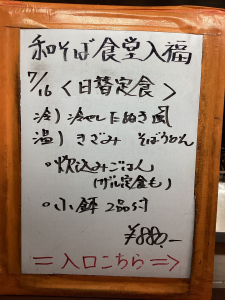 和そば食堂入福
7/16 〈日替定食〉
冷) 冷やしたぬき風
温) きざみ そばうどん
・炊込みごはん
(ザル定食も)
・小鉢 2品付
¥880.-
= 入口こちら =>